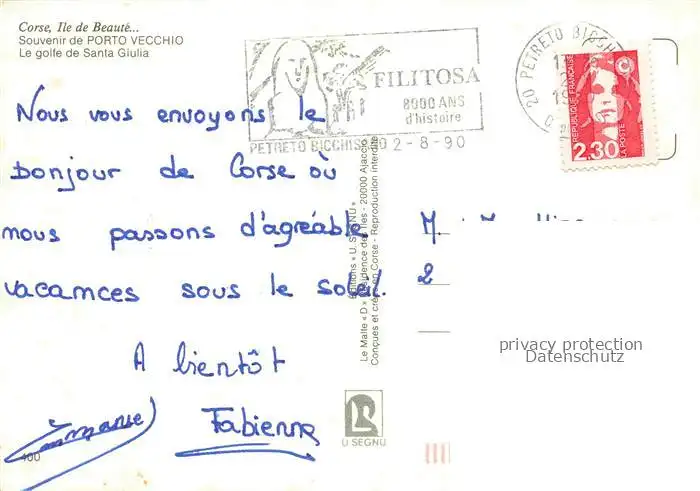 Corse, Ile de Beauté...
Souvenir de PORTO VECCHIO
Le golfe de Santa Giulia
FILITOSA
8000 ANS
d'histoire
PETRETO BICCHISANO 2-8-90
20 PETRETO BICCH
REPUBLIQUE FRANÇAISE
LA POSTE
2.30
Nous vous envoyons le
bonjour de Corse où
nous passons d'agréable
vacances sous le soleil.
A bientôt
Fabienne
Editions « U. SEGNU »
Le Malte « D » Résidence des Iles - 20000 Ajaccio
Conçues et créées en Corse - Reproduction interdite
M.
2
privacy protection
Datenschutz
U SEGNU
400